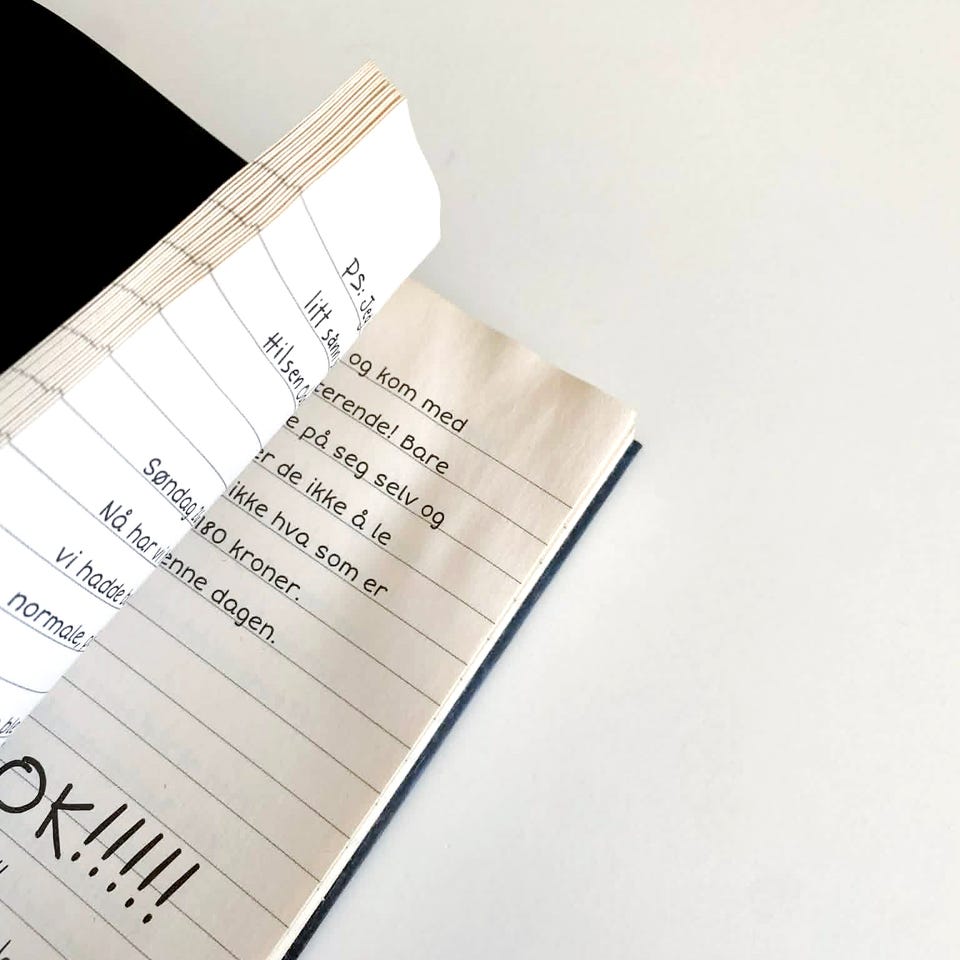 PS: Jeg
litt sånn
Hilsen
Søndag
Nå har vi
vi hadde
normale,
og kom med
terende! Bare
e på seg selv og
er de ikke å le
ikke hva som er
180 kroner.
enne dagen.
OK!!!!!